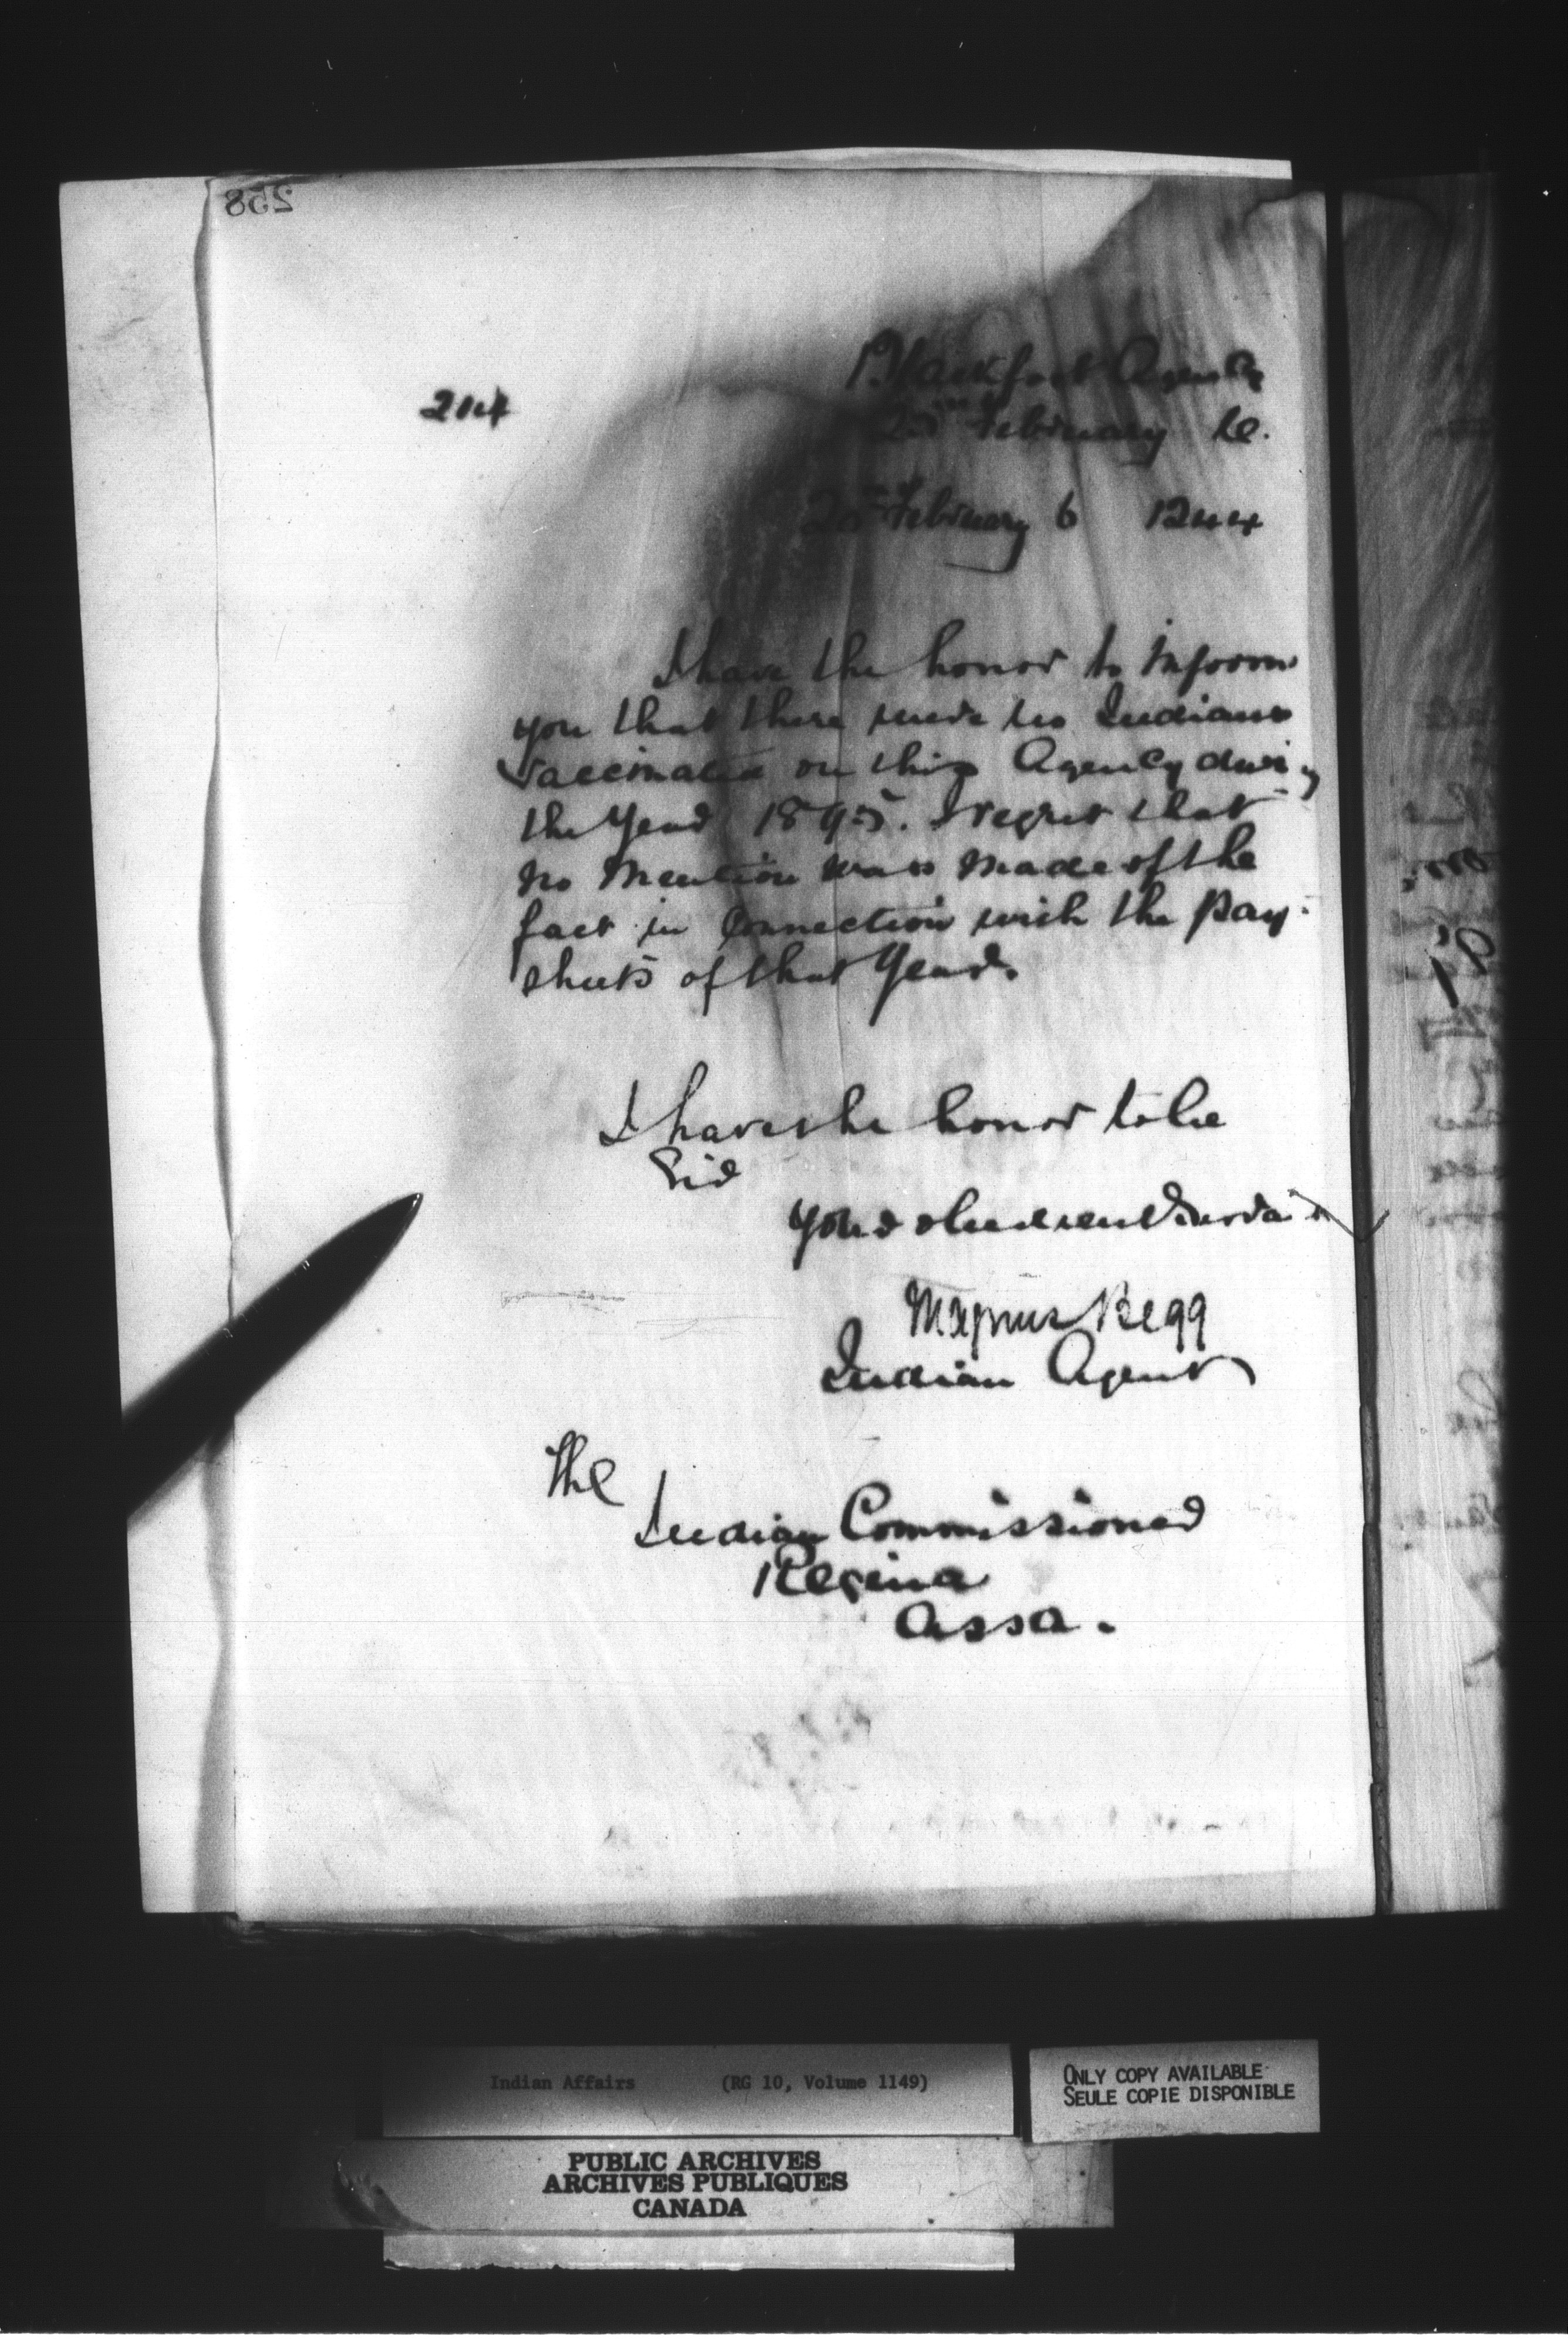 258
214
Blackfoot Agency
February
February 6 1244
I have the honor to inform
you that there were no Indians
vaccinated on this Agency during
the year 1895. I regret that
no mention was made of the
fact in connection with the pay
sheets of that year.
I have the honor to be
Sir
Your obedient Servant
Magnus Begg
Indian Agent
The
Indian Commissioner
Regina
Assa.
Indian Affairs (RG 10, Volume 1149)
ONLY COPY AVAILABLE
SEULE COPIE DISPONIBLE
PUBLIC ARCHIVES
ARCHIVES PUBLIQUES
CANADA